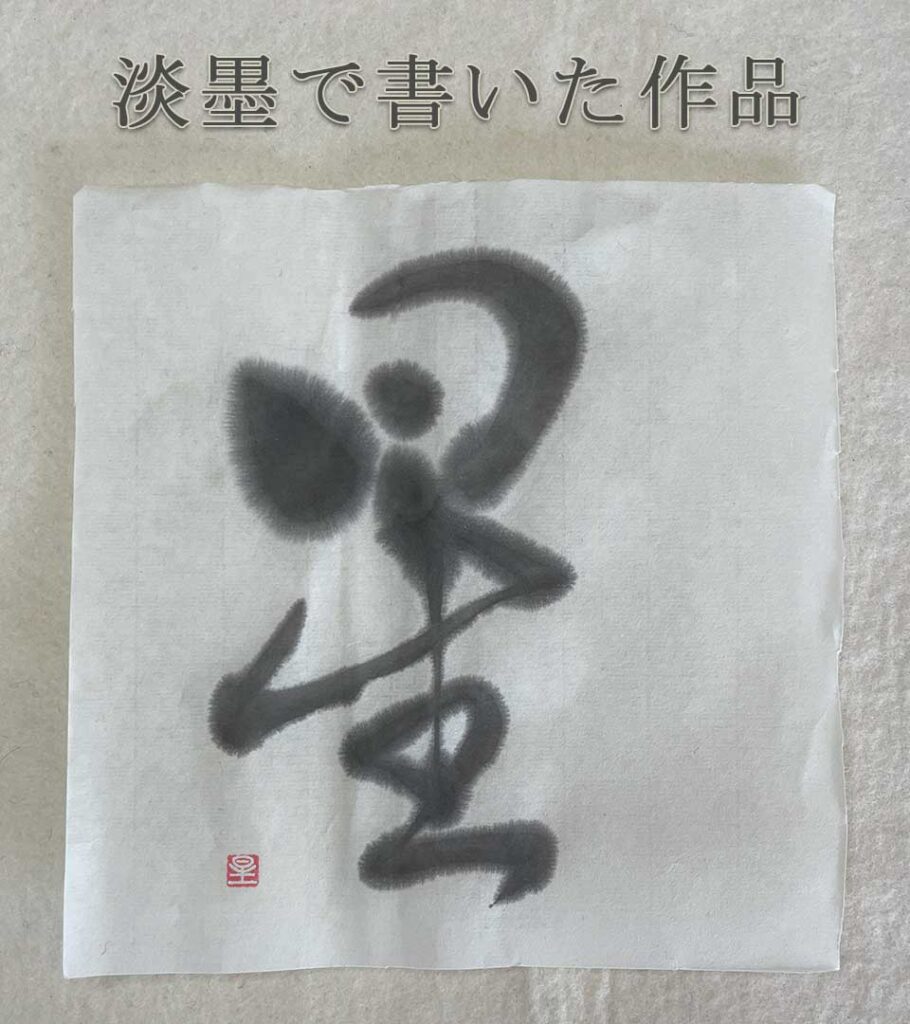 淡墨で書いた作品
星